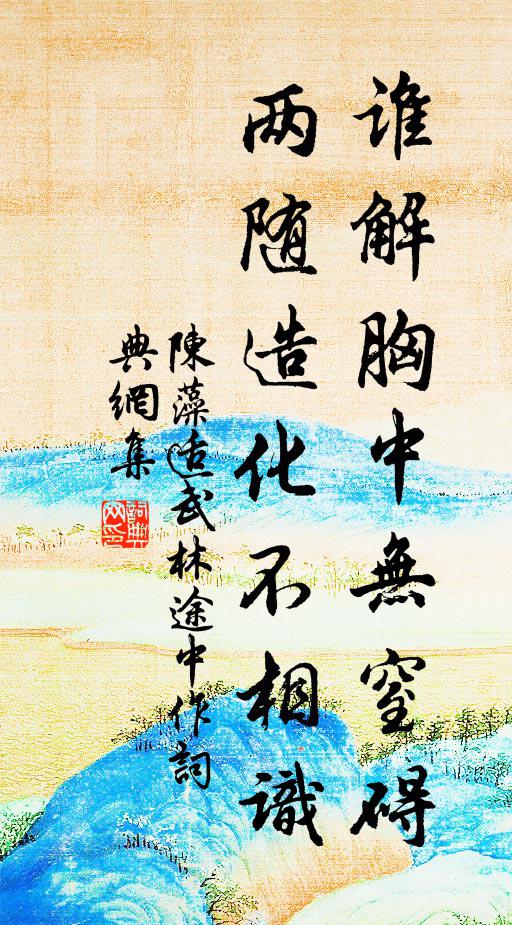 谁解胸中無窒碍
两随造化不相識
陳藻适武林途中作詞
典網集
詞典网印